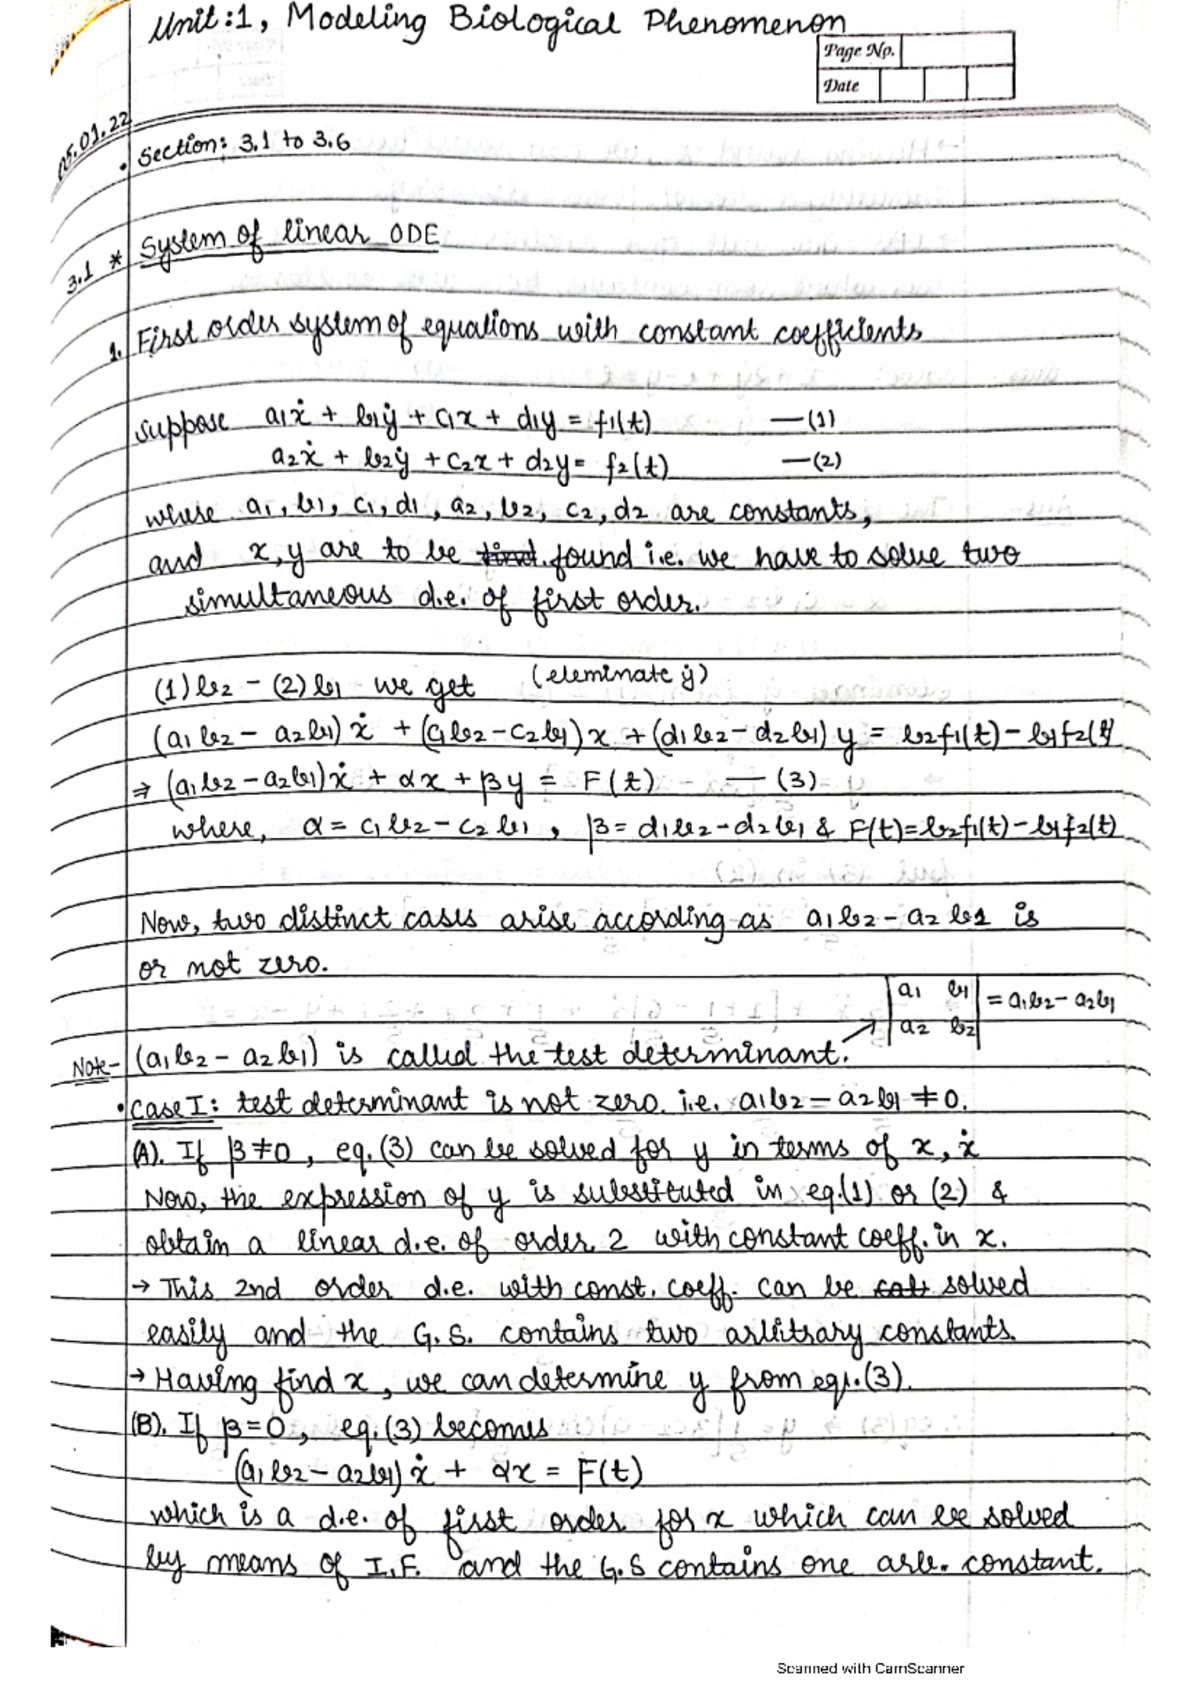 Unit:1, Modeling Biological Phenomenon
Page No.
Date
05.01.22
• Section: 3.1 to 3.6
3.1 * System of linear ODE
1. First order system of equations with constant coefficients
suppose a1ẋ + b1ẏ + c1x + d1y = f1(t) —(1)
a2ẋ + b2ẏ + c2x + d2y = f2(t) —(2)
where a1, b1, c1, d1, a2, b2, c2, d2 are constants,
and x, y are to be find found i.e. we have to solve two
simultaneous d.e. of first order.
(1)b2 - (2)b1 we get (eleminate ẏ)
(a1b2 - a2b1)ẋ + (c1b2 - c2b1)x + (d1b2 - d2b1)y = b2f1(t) - b1f2(t)
⇒ (a1b2 - a2b1)ẋ + αx + βy = F(t) —(3)
where, α = c1b2 - c2b1, β = d1b2 - d2b1 & F(t) = b2f1(t) - b1f2(t)
Now, two distinct cases arise according as a1b2 - a2b1 is
or not zero.
|a1 b1| = a1b2 - a2b1
|a2 b2|
Note- (a1b2 - a2b1) is called the test determinant.
• Case I: test determinant is not zero i.e. a1b2 - a2b1 ≠ 0.
(A). If β ≠ 0, eq.(3) can be solved for y in terms of x, ẋ
Now, the expression of y is substituted in eq.(1) or (2) &
obtain a linear d.e. of order 2 with constant coeff. in x.
→ This 2nd order d.e. with const. coeff. can be solved
easily and the G.S. contains two arbitrary constants.
→ Having find x, we can determine y from eq.(3).
(B). If β = 0, eq.(3) becomes
(a1b2 - a2b1)ẋ + αx = F(t)
which is a d.e. of first order for x which can be solved
by means of I.F. and the G.S contains one arb. constant.
Scanned with CamScanner